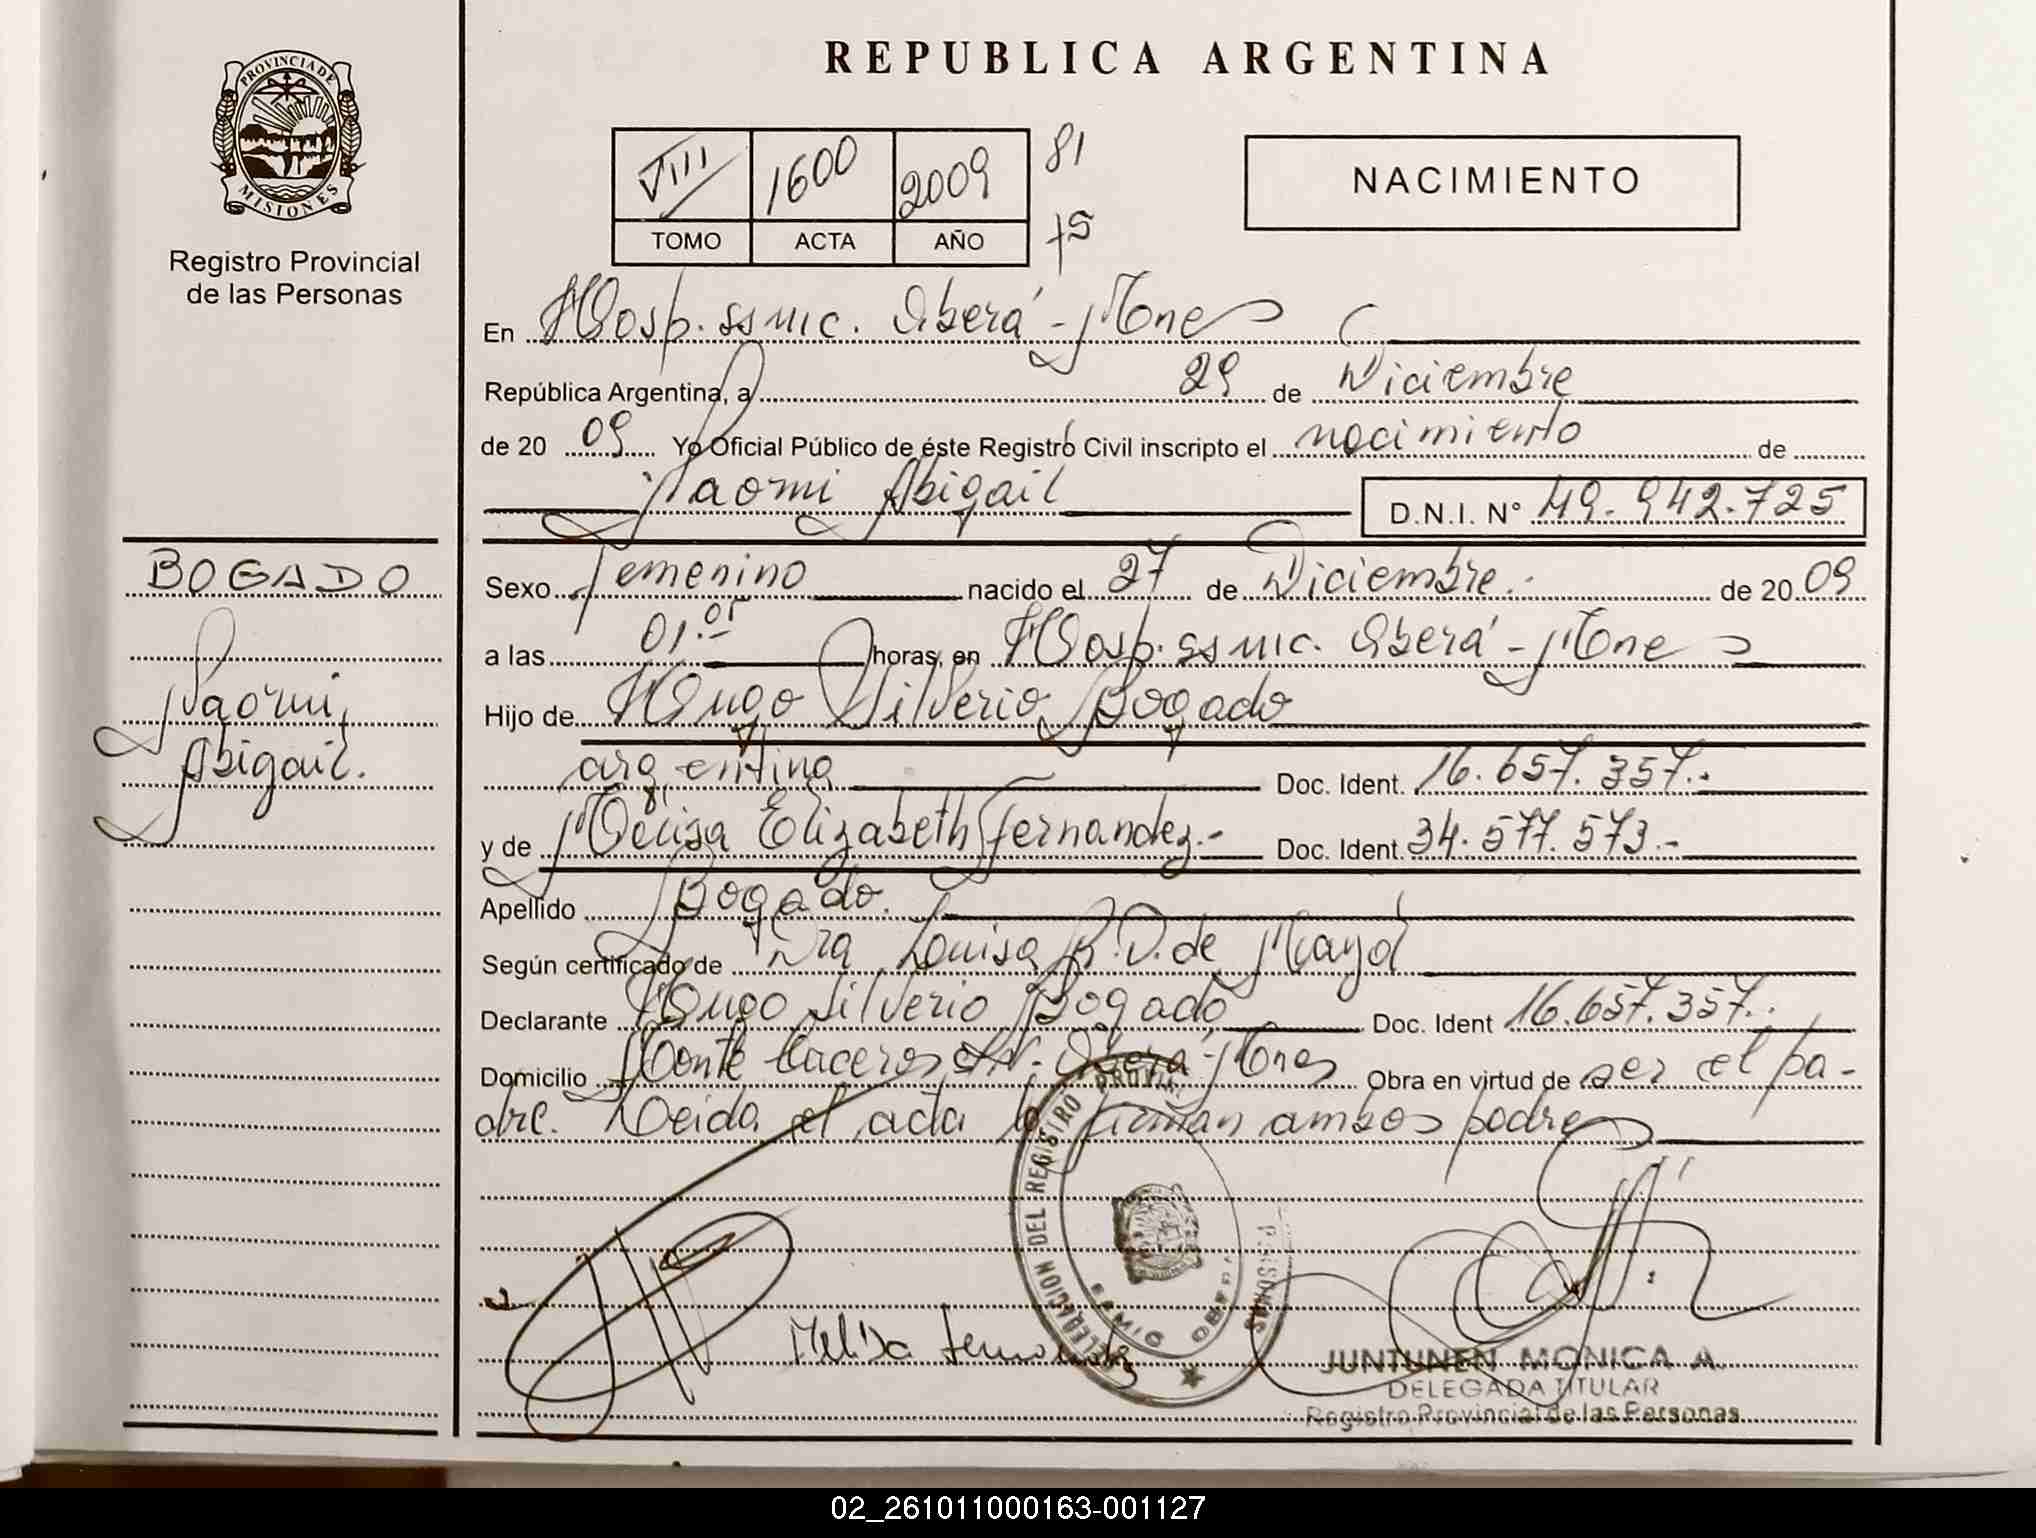 REPUBLICA ARGENTINA
PROVINCIA DE
MISIONES
Registro Provincial
de las Personas
VIII 1600 2009 81
TOMO ACTA AÑO 75
NACIMIENTO
En Hosp. ssmic. Oberá - Mnes
República Argentina, a 29 de Diciembre
de 20 09 Yo Oficial Público de éste Registro Civil inscripto el nacimiento de
Naomi Abigail D.N.I. N° 49.942.725
BOGADO
Naomi
Abigail.
Sexo Femenino nacido el 27 de Diciembre. de 20 09
a las 01.05 horas, en Hosp. ssmic. Oberá - Mnes
Hijo de Hugo Silverio Bogado
argentina Doc. Ident. 16.657.357.-
y de Melisa Elizabeth Fernandez.- Doc. Ident. 34.577.573.-
Apellido Bogado.
Según certificado de Dra Louisa R. D. de Mayol
Declarante Hugo Silverio Bogado Doc. Ident 16.657.357.
Domicilio Monte Caceros S/N. Oberá - Mnes Obra en virtud de ser el pa-
dre. Leida el acta la firman ambos padres
DELEGACION DEL REGISTRO PROVIN
PERSONAS
OBERA
Melisa Fernandez
JUNTUNEN MONICA A.
DELEGADA TITULAR
Registro Provincial de las Personas
02_261011000163-001127